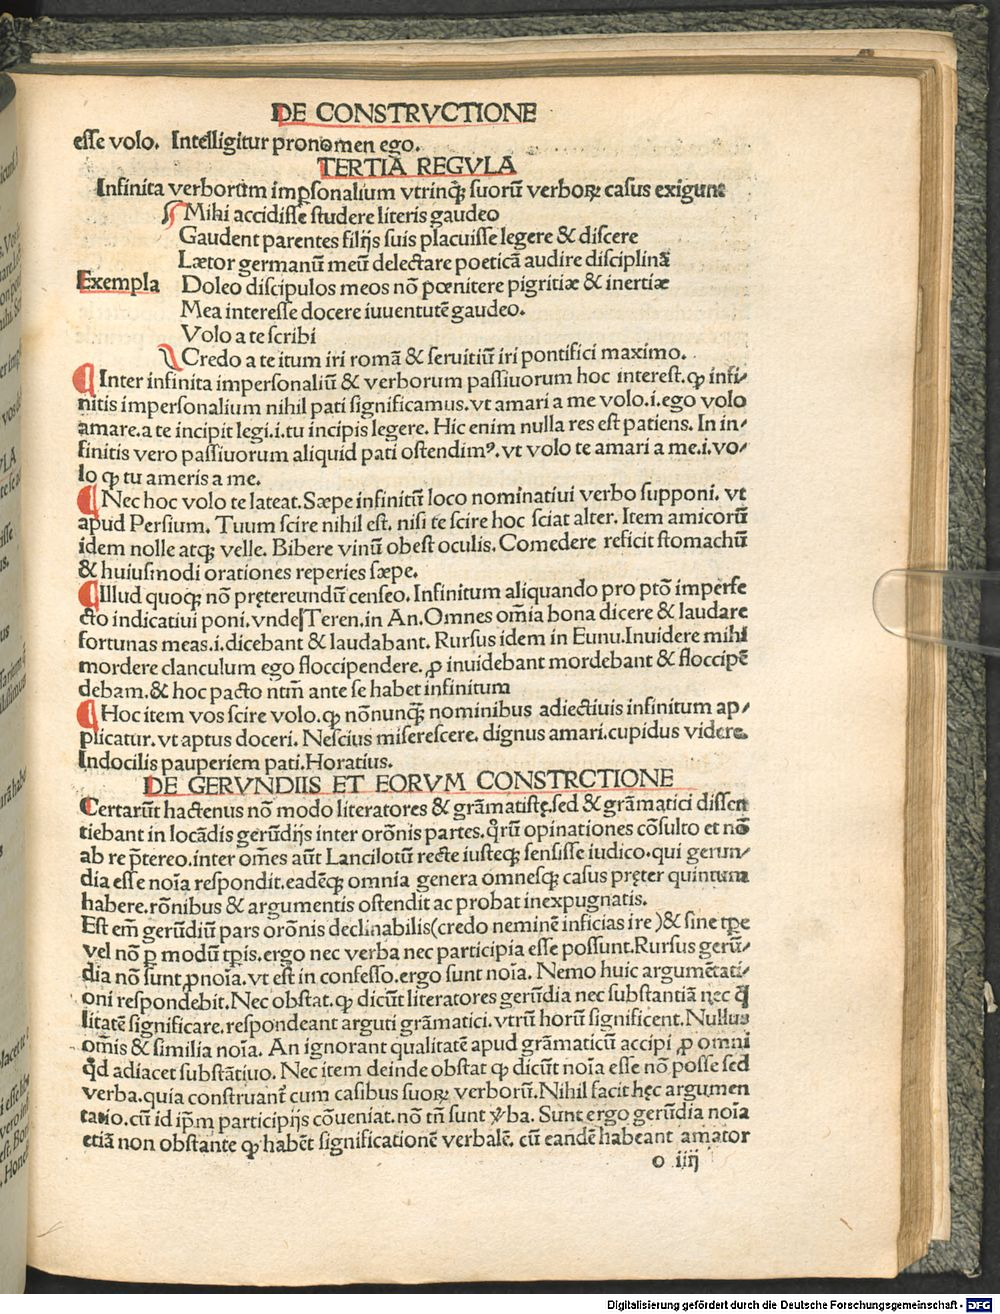 DE CONSTRVCTIONE
esse volo. Intelligitur pronomen ego.
TERTIA REGVLA
Infinita verborum impsonalium vtrinq; suorū verboꝝ casus exigunt
Mihi accidisse studere literis gaudeo
Gaudent parentes filijs suis placuisse legere & discere
Lætor germanū meū delectare poeticā audire disciplinā
Exempla Doleo discipulos meos nō pœnitere pigritiæ & inertiæ
Mea interesse docere iuuentutē gaudeo.
Volo a te scribi
Credo a te itum iri romā & seruitiū iri pontifici maximo.
¶ Inter infinita impersonaliū & verborum passiuorum hoc interest. ꝙ infi⸗
nitis impersonalium nihil pati significamus. vt amari a me volo. i. ego volo
amare. a te incipit legi. i. tu incipis legere. Hic enim nulla res est patiens. In in⸗
finitis vero passiuorum aliquid pati ostendimꝰ. vt volo te amari a me. i. vo⸗
lo ꝙ tu ameris a me.
¶ Nec hoc volo te lateat. Sæpe infinitū loco nominatiui verbo supponi. vt
apud Persium. Tuum scire nihil est, nisi te scire hoc sciat alter. Item amicorū
idem nolle atq; velle. Bibere vinū obest oculis. Comedere reficit stomachū
& huiusmodi orationes reperies sæpe.
¶ Illud quoq; nō prętereundū censeo. Infinitum aliquando pro ptō imperfe
cto indicatiui poni. vnde Teren. in An. Omnes om̄ia bona dicere & laudare
fortunas meas. i. dicebant & laudabant. Rursus idem in Eunu. Inuidere mihi
mordere clanculum ego floccipendere. ꝓ inuidebant mordebant & floccipē
debam. & hoc pacto ntm̄ ante se habet infinitum
¶ Hoc item vos scire volo. ꝙ nōnunq̄; nominibus adiectiuis infinitum ap⸗
plicatur. vt aptus doceri. Nescius miserescere. dignus amari. cupidus videre.
Indocilis pauperiem pati. Horatius.
DE GERVNDIIS ET EORVM CONSTRCTIONE
Certarūt hactenus nō modo literatores & grāmatistę. sed & grāmatici dissen
tiebant in locādis gerūdijs inter orōnis partes. qͦrū opinationes cōsulto et nō
ab re p̄tereo. inter om̄es aūt Lancilotū recte iusteq; sensisse iudico. qui gerun⸗
dia esse noīa respondit. eadēq; omnia genera omnesq; casus pręter quintum
habere. rōnibus & argumentis ostendit ac probat inexpugnatis.
Est em̄ gerūdiū pars orōnis declinabilis (credo neminē inficias ire) & sine tꝑe
vel nō ꝑ modū tꝑis. ergo nec verba nec participia esse possunt. Rursus gerū⸗
dia nō sunt ꝓnoīa. vt est in confesso. ergo sunt noīa. Nemo huic argumētati⸗
oni respondebit. Nec obstat. ꝙ dicūt literatores gerūdia nec substantiā nec q̄
litatē significare. respondeant arguti grāmatici. vtrū horū significent. Nullus
om̄is & similia noīa. An ignorant qualitatē apud grāmaticū accipi ꝓ omni
qͦd adiacet substātiuo. Nec item deinde obstat ꝙ dicūt noīa esse nō posse sed
verba. quia construant̄ cum casibus suoꝝ verborū. Nihil facit hęc argumen
tatio. cū id ip̄m participijs cōueniat. nō tn̄ sunt v̓ba. Sunt ergo gerūdia noīa
etiā non obstante ꝙ habēt significationē verbalē. cū eandē habeant amator
o iiij
Digitalisierung gefördert durch die Deutsche Forschungsgemeinschaft - DFG